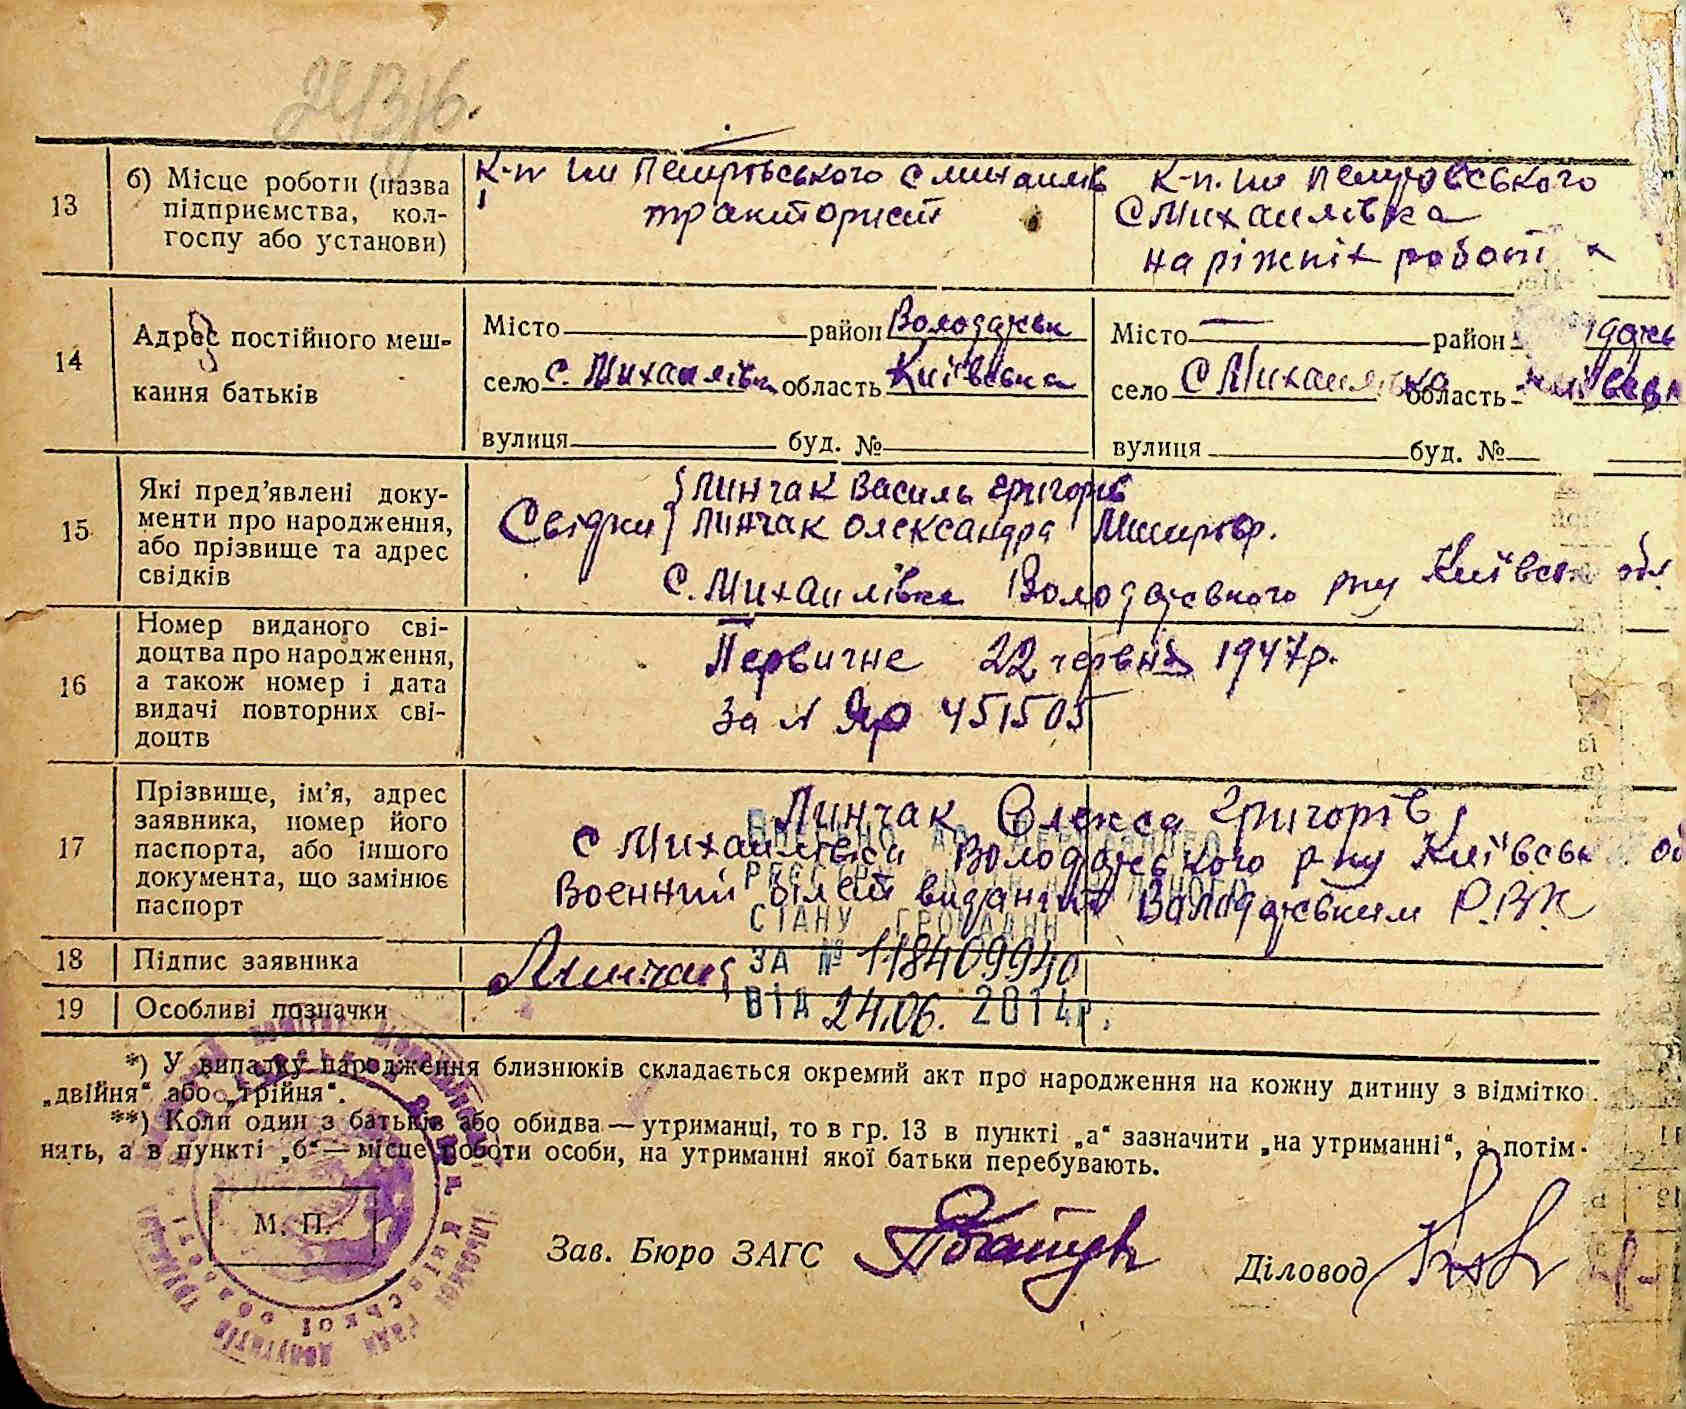 13
б) Місце роботи (назва
підприємства, кол-
госпу або установи)
К-п ім Петрівського с Михаилів
тракторист
К-п. ім Петровського
с Михаилівка
на ріжніх роботі х
14
Адрес постійного меш-
кання батьків
Місто район Володарськ
село с. Михаилівка область Київська
вулиця буд. №
Місто район
село с Михаилівка область
вулиця буд. №
15
Які пред'явлені доку-
менти про народження,
або прізвище та адрес
свідків
Линчак Василь Григорів
Свідки Линчак Олександра
с. Михаилівка Володарського р-ну Київськ обл
16
Номер виданого сві-
доцтва про народження,
а також номер і дата
видачі повторних сві-
доцтв
Первичне 22 червня 1947р.
за № 451505
17
Прізвище, ім'я, адрес
заявника, номер його
паспорта, або іншого
документа, що замінює
паспорт
Линчак Олекса Григорів
с Михаилівки Володарського р-ну Київськ об
Военний білет виданий Володарським Р.В.К
ВНЕСЕНО ДО ДЕРЖАВНОГО
РЕЄСТРУ АКТІВ ЦИВІЛЬНОГО
СТАНУ ГРОМАДЯН
ЗА № 118409940
ВІД 24.06. 2014р.
18
Підпис заявника
Линчак
19
Особливі позначки
*) У випадку народження близнюків складається окремий акт про народження на кожну дитину з відмітко
„двійня“ або „трійня“.
**) Коли один з батьків або обидва — утриманці, то в гр. 13 в пункті „а“ зазначити „на утриманні“, а потім
нять, а в пункті „б“ — місце роботи особи, на утриманні якої батьки перебувають.
М. П.
Зав. Бюро ЗАГС
Діловод